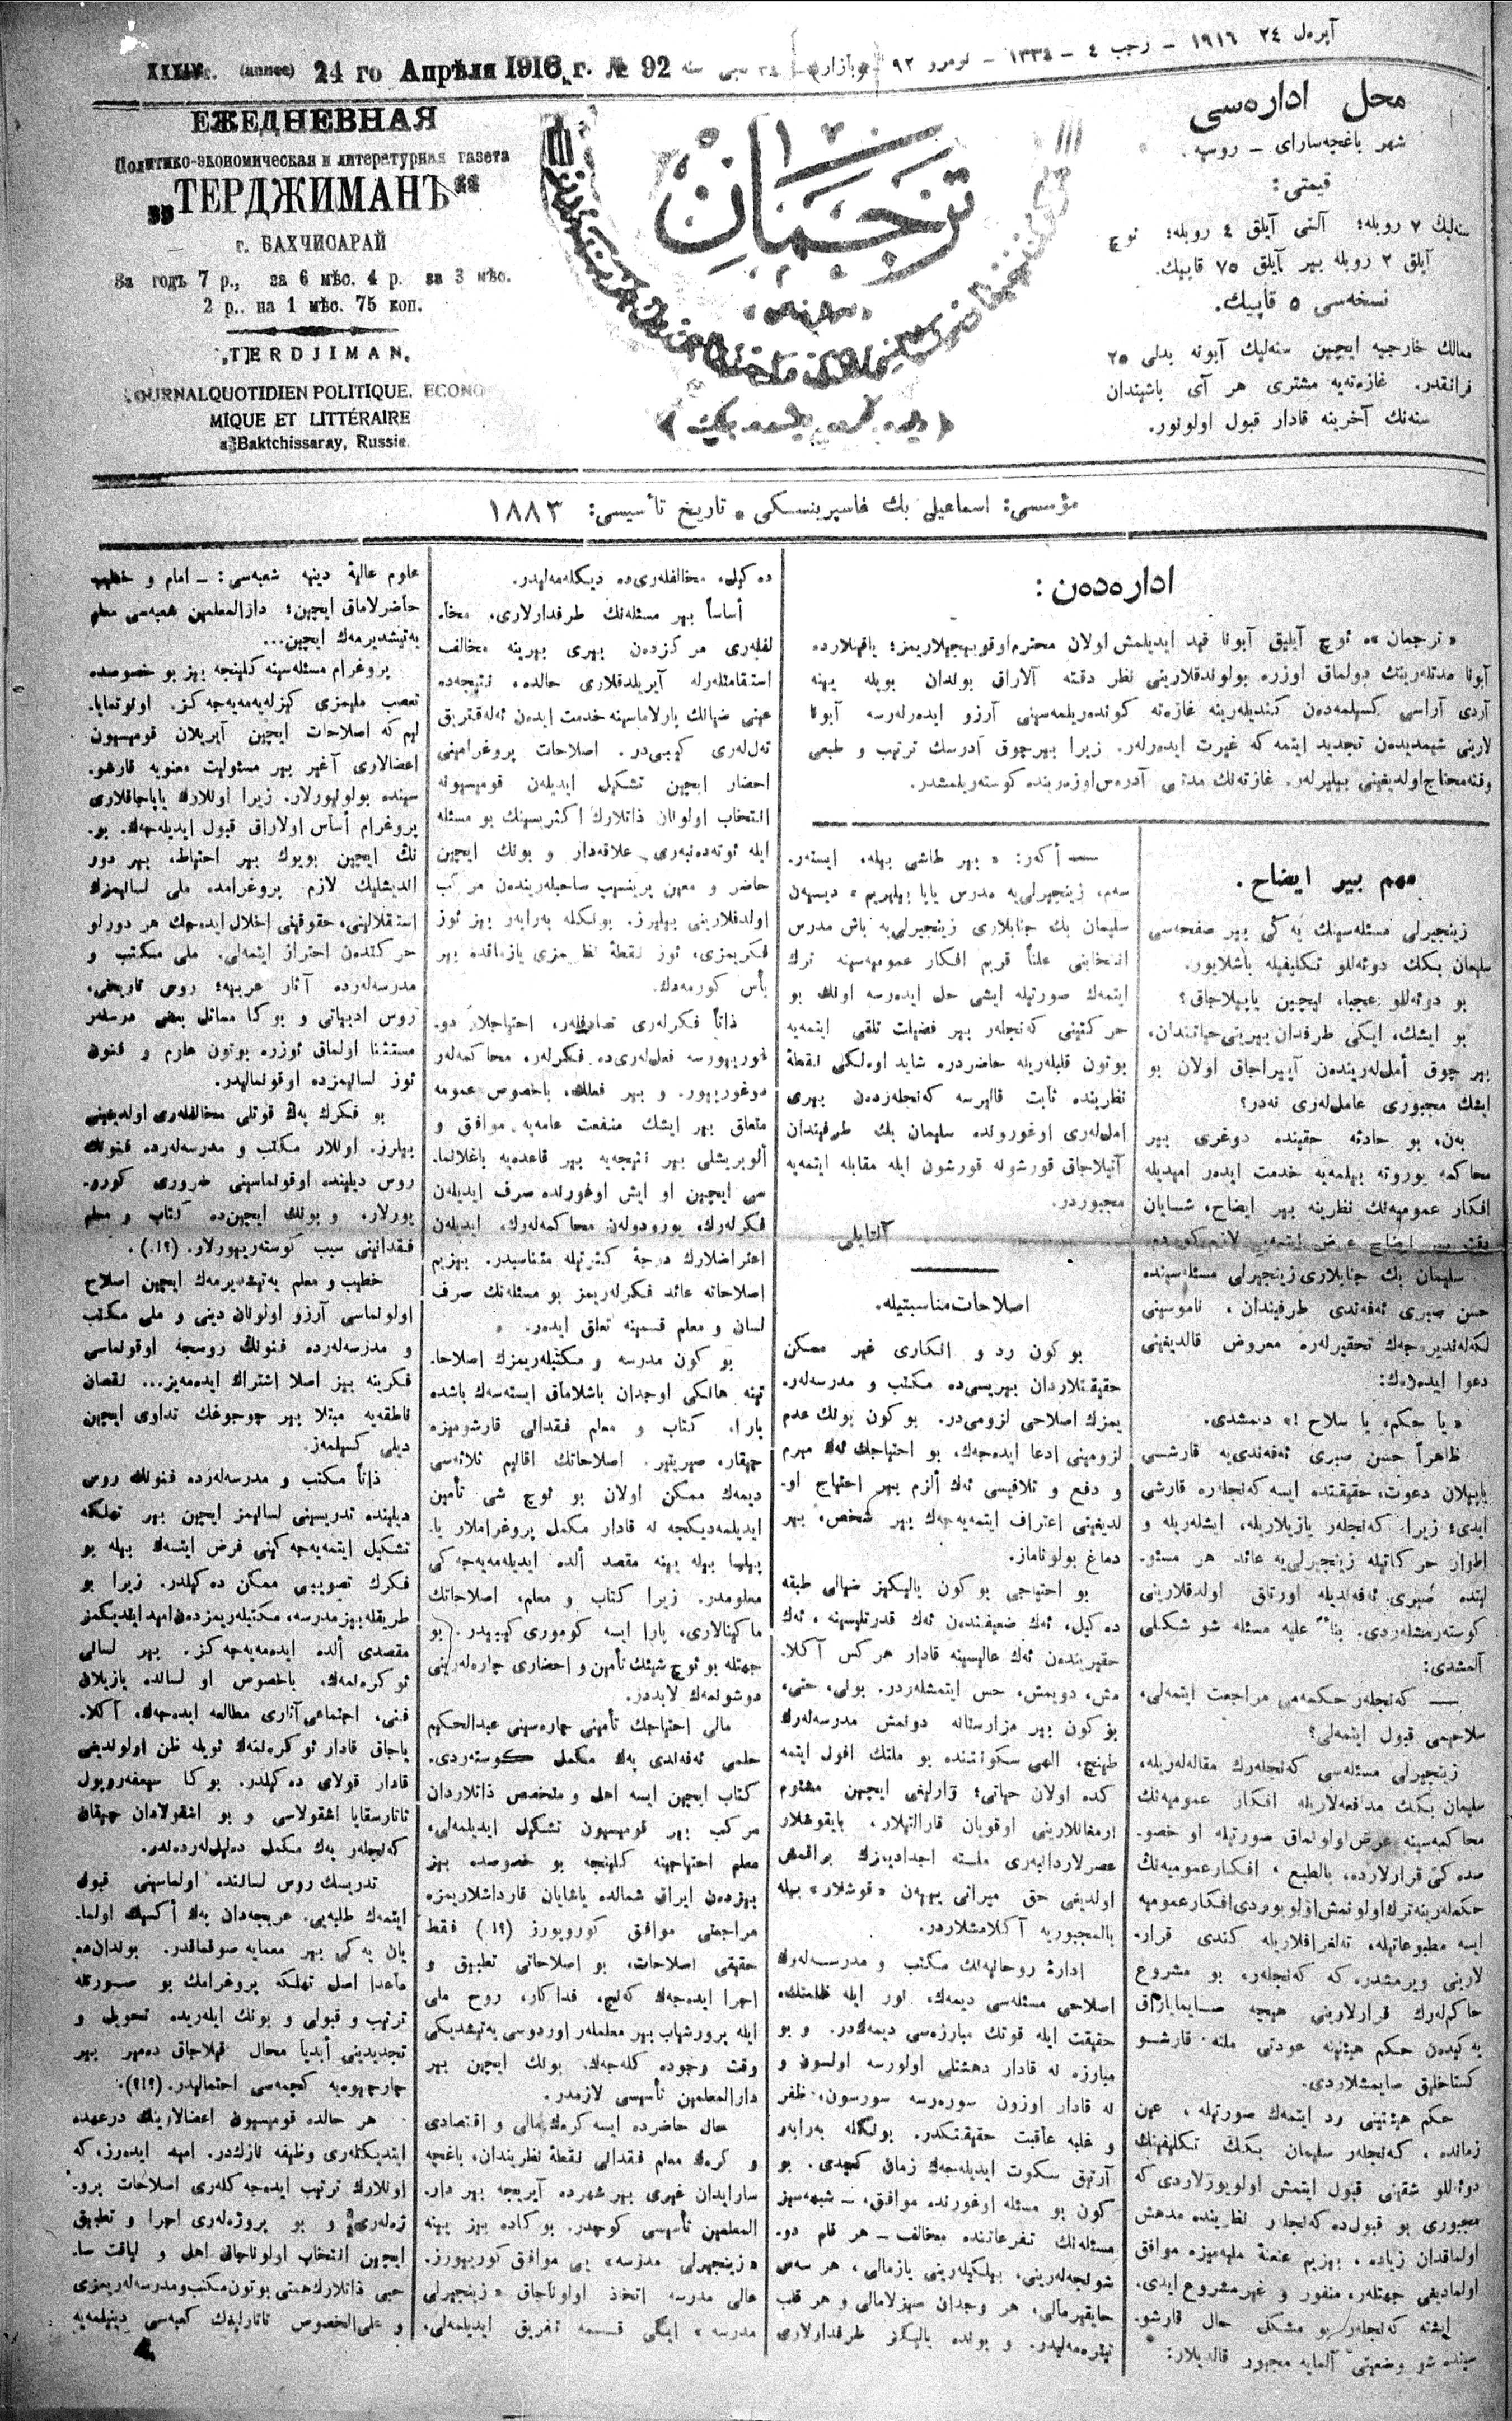 آپره‌ل ٢٤ ١٩١٦ – رجب ٤ – ١٣٣٤ – نومرو ٩٢ «بازار» ٣٤ نجی سنه
XXXIV г. (année) 24 го Апрѣля 1916 г. № 92
محل اداره‌سی
شهر باغچه‌سارای – روسیه.
قیمتی:
سنه‌لیك ٧ روبله؛ آلتی آیلق ٤ روبله؛ ئوچ
آیلق ٢ روبله بیر آیلق ٧٥ قاپیك.
نسخه‌سی ٥ قاپیك.
ممالك خارجیه ایچین سنه‌لیك آبونه بدلی ٢٥
فرانقدر. غازه‌ته‌یه مشتری هر آی باشیندان
سنه‌نك آخرینه قادار قبول اولونور.
ترجمان
ЕЖЕДНЕВНАЯ
Политико-экономическая и литературная газета
„ТЕРДЖИМАНЪ“
г. БАХЧИСАРАЙ
За годъ 7 р., за 6 мѣс. 4 р. за 3 мѣс.
2 р.. на 1 мѣс. 75 коп.
„TERDJIMAN„
JOURNAL QUOTIDIEN POLITIQUE. ECONO
MIQUE ET LITTÉRAIRE
Baktchissaray, Russie.
مؤسسی: اسماعیل بك غاسپرینسکی • تاریخ تأسیسی: ١٨٨٣
اداره‌ده‌ن:
«ترجمان»ه ئوچ آیلیق آبونا قید ایدیلمش اولان محترم اوقویوجیلاریمز؛ یاقینلارده
آبونا مدتله‌رینك دولماق اوزره بولوندقلارینی نظر دقته آلاراق بوندان بویله یینه
آردی آراسی کسیلمه‌ده‌ن کندیله‌رینه غازه‌ته کونده‌ریلمه‌سینی آرزو ایده‌رله‌رسه آبونا
لارینی شیمدیدن تجدید ایتمه که غیرت ایده‌رله‌ر. زیرا بیر چوق آدرسك ترتیب و طبعی
وقته محتاج اولدیغینی بیلیرله‌ر. غازته‌نك مدتی آدره‌س اوزه‌رینده کوسته‌ریلمشدر.
مهم بیر ایضاح.
زینجیرلی مسئله‌سینك یه‌کی بیر صفحه‌سی
سلیمان بکك دوئه‌للو تکلیفیله باشلایور.
بو دوئه‌للو عجبا، ایچین یاپیلاجاق؟
بو ایشك، ایکی طرفدان بیرینی حیاتندان،
بیر چوق أمل‌له‌ریندن آییراجاق اولان بو
ایشك مجبوری عامل‌له‌ری نه‌در؟
به‌ن، بو حادثه حقینده دوغری بیر
محاکمه یوروته بیلمه‌یه خدمت ایده‌ر امیدیله
افکار عمومیه‌نك نظرینه بیر ایضاح، شایان
سلیمان بك جنابلاری زینجیرلی مسئله‌سینده
حسن صبری ئه‌فه‌ندی طرفیندان، ناموسینی
لکه‌له‌ندیره‌جه‌ك تحقیرله‌ره معروض قالدیغینی
دعوا ایده‌ره‌ك:
«یا حکم، یا سلاح!» دیمشدی.
ظاهراً حسن صبری ئه‌فه‌ندی‌یه قارشی
یاپیلان دعوت، حقیقتده ایسه که‌نجله‌ره قارشی
ایدی؛ زیرا که‌نجله‌ر یازیلاریله، ایشله‌ریله و
اطوار حرکاتیله زینجیرلی‌یه عائد هر مسئو-
لیتده صبری ئه‌فه‌ندیله اورتاق اولدقلارینی
کوسته‌رمشله‌ردی. بناءً علیه مسئله شو شکلی
آلمشدی:
— که‌نجله‌ر حکمه‌می مراجعت ایتمه‌لی،
سلاحیمی قبول ایتمه‌لی؟
زینجیرلی مسئله‌سی که‌نجله‌رك مقاله‌له‌ریله،
سلیمان بکك مدافعه‌لاریله افکار عمومیه‌نك
محاکمه‌سینه عرض اولونماق صورتیله او خصو-
صده‌کی قرارلارده، بالطبع، افکار عمومیه‌نك
حکم‌له‌رینه ترك اولونمش اولویوردی افکار عمومیه
ایسه مطبوعاتیله، ته‌لغرافلاریله کندی قرار-
لارینی ویرمشدر، که که‌نجله‌ر، بو مشروع
حاکم‌له‌رك قرارلارینی هیچه صایمایاراق
یه‌کیدن حکم هیئتینه عودتی ملته قارشو
کستاخلیق صایمشلاردی.
حکم هیئتینی رد ایتمه‌ك صورتیله، عین
زمانده، که‌نجله‌ر سلیمان بکك تکلیفینك
دوئه‌للو شقنی قبول ایتمش اولویورلاردی که
مجبوری بو قبولده که‌نجله‌ر نظرینده مدهش
اولماقدان زیاده، بیزیم عنعنهٔ ملیه‌میزه موافق
اولمادیغی جهتله‌ر، منفور و غیر مشروع ایدی.
ایشته که‌نجله‌ر بو مشکل حال قارشو-
سینده شو وضعیتی آلمایه مجبور قالدیلار:
— أکه‌ر: «بیر طاشی بیله، ایسته‌ر-
سه‌م، زینجیرلی‌یه مدرس یاپا بیلیریم» دیسه‌ن
سلیمان بك جنابلاری زینجیرلی‌یه باش مدرس
انتخابنی علناً قریم افکار عمومیه‌سینه ترك
ایتمه‌ك صورتیله ایشی حل ایده‌رسه اونك بو
حرکتینی که‌نجله‌ر بیر فضیلت تلقی ایتمه‌یه
بوتون قلبله‌ریله حاضردره شاید اوه‌لکی نقطهٔ
نظرینده ثابت قالیرسه که‌نجله‌رده‌ن بیری
امل‌له‌ری اوغورونده سلیمان بك طرفیندان
آتیلاجاق قورشونه قورشون ایله مقابله ایتمه‌یه
مجبوردر.
آلتایلی
اصلاحات مناسبتیله.
بو کون رد و انکاری غیر ممکن
حقیقتلاردان بیریسی‌ده مکتب و مدرسه‌له‌ر-
یمزك اصلاحی لزومی‌در. بو کون بونك عدم
لزومینی ادعا ایده‌جه‌ك، بو احتیاجك ئه‌ك مبرم
و دفع و تلافیسی ئه‌ك ألزم بیر احتیاج او-
لدیغینی اعتراف ایتمه‌یه‌جه‌ك بیر شخص، بیر
دماغ بولوناماز.
بو احتیاجی بو کون یالیکیز ضیالی طبقه
ده‌کیل، ئه‌ك ضعیفندن ئه‌ك قدرتلیسینه، ئه‌ك
حقیرینده‌ن ئه‌ك عالیسینه قادار هرکس آکلا-
مش، دویمش، حس ایتمشله‌ردر. بونی، حتی،
بو کون بیر مزارستانه دونمش مدرسه‌له‌رك
طینچ، الهی سکوتنده بو ملتك افول ایتمه
کده اولان حیاتی؛ وارلیغی ایچین مشئوم
ارمغانلارینی اوقویان قارانلیلار، بایقوشلار
عصرلاردانبه‌ری ملته اجدادیمزك براقمش
اولدیغی حق میراثی یییه‌ن «قوشلار» بیله
بالمجبوریه آکلامشلاردر.
ادارهٔ روحانیه‌نك مکتب و مدرسه‌له‌رك
اصلاحی مسئله‌سی دیمه‌ك، نور ایله ظلمتك،
حقیقت ایله قوتك مبارزه‌سی دیمه‌کدر. و بو
مبارزه نه قادار دهشتلی اولورسه اولسون و
نه قادار اوزون سوره‌رسه سورسون، ظفر
و غلبه عاقبت حقیقتکدر. بونکله به‌رابه‌ر
آرتیق سکوت ایدیله‌جه‌ك زمان کچدی. بو
کون بو مسئله اوغورنده موافق، – شبهه‌سیز
مسئله‌نك تفرعاتنده مخالف – هر قلم دو-
شونجه‌له‌رینی، بیلکیله‌رینی یازمالی، هر سه‌س
حایقیرمالی، هر وجدان صیزلامالی و هر قلب
تیتره‌مه‌لیدر. و بونده یالیکیز طرفدارلاری
ده‌کیل، مخالفله‌ری‌ده دیکله‌مه‌لیدر.
أساساً بیر مسئله‌نك طرفدارلاری، مخا-
لفله‌ری مرکزدن بیری بیرینه مخالف
استقامتله‌رله آیریلدقلاری حالده، نتیجه‌ده
عینی ضیانك پارلاماسینه خدمت ایده‌ن ئه‌له‌قتریق
ته‌ل‌له‌ری کیبی‌در. اصلاحات پروغرامینی
احضار ایچین تشکیل ایدیله‌ن قومیسیونه
انتخاب اولونان ذاتلارك اکثریسینك بو مسئله
ایله ئوته‌ده‌نبه‌ری علاقه‌دار و بونك ایچین
حاضر و معین پرینسیپ صاحبله‌رینده‌ن مرکب
اولدقلارینی بیلیرز. بونکله به‌رابه‌ر بیز ئوز
فکریمزی، ئوز نقطهٔ نظریمزی یازماقده بیر
بأس کورمه‌دك.
ذاتاً فکرله‌ری تصادفله‌ر، احتیاجلار دو-
غوریورسه فعل‌له‌ری‌ده فکرله‌ر، محاکمه‌له‌ر
دوغوریور. و بیر فعلك، باخصوص عمومه
متعلق بیر ایشك منفعت عامه‌یه موافق و
ألویریشلی بیر نتیجه‌یه بیر قاعده‌یه باغلانما-
سی ایچین او ایش اوغورنده صرف ایدیله‌ن
فکرله‌رك، یورودوله‌ن محاکمه‌له‌رك، ایدیله‌ن
اعتراضلارك درجهٔ کثرتیله متناسبدر. بیزیم
اصلاحاته عائد فکرله‌ریمز بو مسئله‌نك صرف
لسان و معلم قسمینه تعلق ایده‌ر.
بو کون مدرسه و مکتبله‌ریمزك اصلاحا-
تینه هانکی اوجدان باشلاماق ایسته‌سه‌ك باشده
پارا، کتاب و معلم فقدانی قارشومیزه
چیقار، صیریتیر. اصلاحاتك اقالیم ثلاثه‌سی
دیمه‌ك ممکن اولان بو ئوچ شی تأمین
ایدیلمه‌دیکجه نه قادار مکمل پروغراملار یا-
پیلسا بیله یینه مقصد ألده ایدیله‌مه‌یه‌جه‌کی
معلومدر. زیرا کتاب و معلم، اصلاحاتك
ماکینالاری، پارا ایسه کوموری کیبیدر. بو
جهتله بو ئوچ شیئك تأمین و احضاری چاره‌له‌رینی
دوشونمه‌ك لابددر.
مالی احتیاجك تأمینی چاره‌سینی عبدالحکیم
حلمی ئه‌فه‌ندی پك مکمل کوسته‌ردی.
کتاب ایچین ایسه اهل و متخصص ذاتلاردان
مرکب بیر قومیسیون تشکیل ایدیلمه‌لی،
معلم احتیاجینه کلینجه بو خصوصده بیز
بیزده‌ن ایراق شمالده یاشایان قارداشلاریمزه
مراجعتی موافق کورویورز (؟!) فقط
حقیقی اصلاحات، بو اصلاحاتی تطبیق و
اجرا ایده‌جه‌ك که‌نج، فداکار، روح ملی
ایله پرورشیاب بیر معلمله‌ر اوردوسی یه‌تیشدیکی
وقت وجوده کله‌جه‌ك. بونك ایچین بیر
دارالمعلمین تأسیسی لازمدر.
حال حاضرده ایسه کره‌ك مالی و اقتصادی
و کره‌ك معلم فقدانی نقطهٔ نظریندان، باغچه
سارایدان غیری بیر شهرده آیریجه بیر دار-
المعلمین تأسیسی کوجدر. بوکاده بیز یینه
«زینجیرلی مدرسه» یی موافق کوریورز.
عالی مدرسه اتخاذ اولوناجاق «زینجیرلی
مدرسه» ایکی قسمه تفریق ایدیلمه‌لی،
علوم عالیهٔ دینیه شعبه‌سی: – امام و خطیب
حاضرلاماق ایچین؛ دارالمعلمین شعبه‌سی معلم
یه‌تیشدیرمه‌ك ایچین...
پروغرام مسئله‌سینه کلینجه بیز بو خصوصده
تعصب ملیمزی کیزله‌یه‌مه‌یه‌جه‌کز. اونوتمایا-
لیم که اصلاحات ایچین آیریلان قومیسیون
اعضالاری آغیر بیر مسئولیت معنویه قارشو-
سینده بولونیورلار. زیرا اونلارك یاپاجاقلاری
پروغرام أساس اولاراق قبول ایدیله‌جه‌ك. بو-
نك ایچین بویوك بیر احتیاط، بیر دور
اندیشلیك لازم پروغرامده ملی لسانیمزك
استقلالینی، حقوقینی اخلال ایده‌جه‌ك هر دورلو
حرکتدن احتراز ایتمه‌لی. ملی مکتب و
مدرسه‌له‌رده آثار عربیه؛ روس تاریخی،
روس ادبیاتی و بوکا مماثل بعض درسله‌ر
مستثنا اولماق ئوزره بوتون علوم و فنون
ئوز لسانیمزده اوقونمالیدر.
بو فکرك پك قوتلی مخالفله‌ری اولدیغینی
بیلیرز. اونلار مکتب و مدرسه‌له‌رده فنونك
روس دیلینده اوقونماسینی ضروری کورو-
یورلار، و بونك ایچین‌ده کتاب و معلم
فقدانینی سبب کوسته‌ریورلار. (؟!.).
خطیب و معلم یه‌تیشدیرمه‌ك ایچین اصلاح
اولونماسی آرزو اولونان دینی و ملی مکتب
و مدرسه‌له‌رده فنونك روسجه اوقونماسی
فکرینه بیز اصلا اشتراك ایده‌مه‌یز... نقصان
ناطقه‌یه مبتلا بیر چوجوغك تداوی ایچین
دیلی کسیلمه‌ز.
ذاتاً مکتب و مدرسه‌له‌رده فنونك روس
دیلینده تدریسینی لسانیمز ایچین بیر تهلکه
تشکیل ایتمه‌یه‌جه‌کینی فرض ایتسه‌ك بیله بو
فکرك تصویبی ممکن ده‌کیلدر. زیرا بو
طریقله بیز مدرسه، مکتبله‌ریمزده‌ن امید ایتدیکمز
مقصدی ألده ایده‌مه‌یه‌جه‌کز. بیر لسانی
ئوکره‌نمه‌ك، باخصوص او لسانده یازیلان
فنی، اجتماعی آثاری مطالعه ایده‌جه‌ك، آکلا-
یاجاق قادار ئوکره‌نمه‌ك ئویله ظن اولوندیغی
قادار قولای ده‌کیلدر. بوکا سیمفه‌روپول
تاتارسقایا اشقولاسی و بو اشقولادان چیقان
که‌نجله‌ر پك مکمل ده‌لیل‌له‌رده‌ندر.
تدریسك روس لسانده اولماسینی قبول
ایتمه‌ك طلبه‌یی، عربجه‌دان پك أکسیك اولما-
یان یه‌کی بیر معمایه صوقماقدر. بوندان‌ده
ماعدا اصل تهلکه پروغرامك بو صورتله
ترتیب و قبولی و بونك ایله‌ریده تحویل و
تجدیدینی أبدیا محال قیلاجاق ده‌میر بیر
چارچیوه‌یه کچمه‌سی احتمالیدر. (؟!؟).
هر حالده قومیسیون اعضالارینك درعهده
ایتدیکله‌ری وظیفه نازکدر. امید ایده‌رز، که
اونلارك ترتیب ایده‌جه‌کله‌ری اصلاحات پرو-
ژه‌له‌ری و بو پروژه‌له‌ری اجرا و تطبیق
ایچین انتخاب اولوناجاق اهل و لیاقت صا-
حبی ذاتلارك همتی بوتون مکتب و مدرسه‌له‌ریمزی
و علی‌الخصوص تاتارلیغك کعبه‌سی دینیلمه‌یه